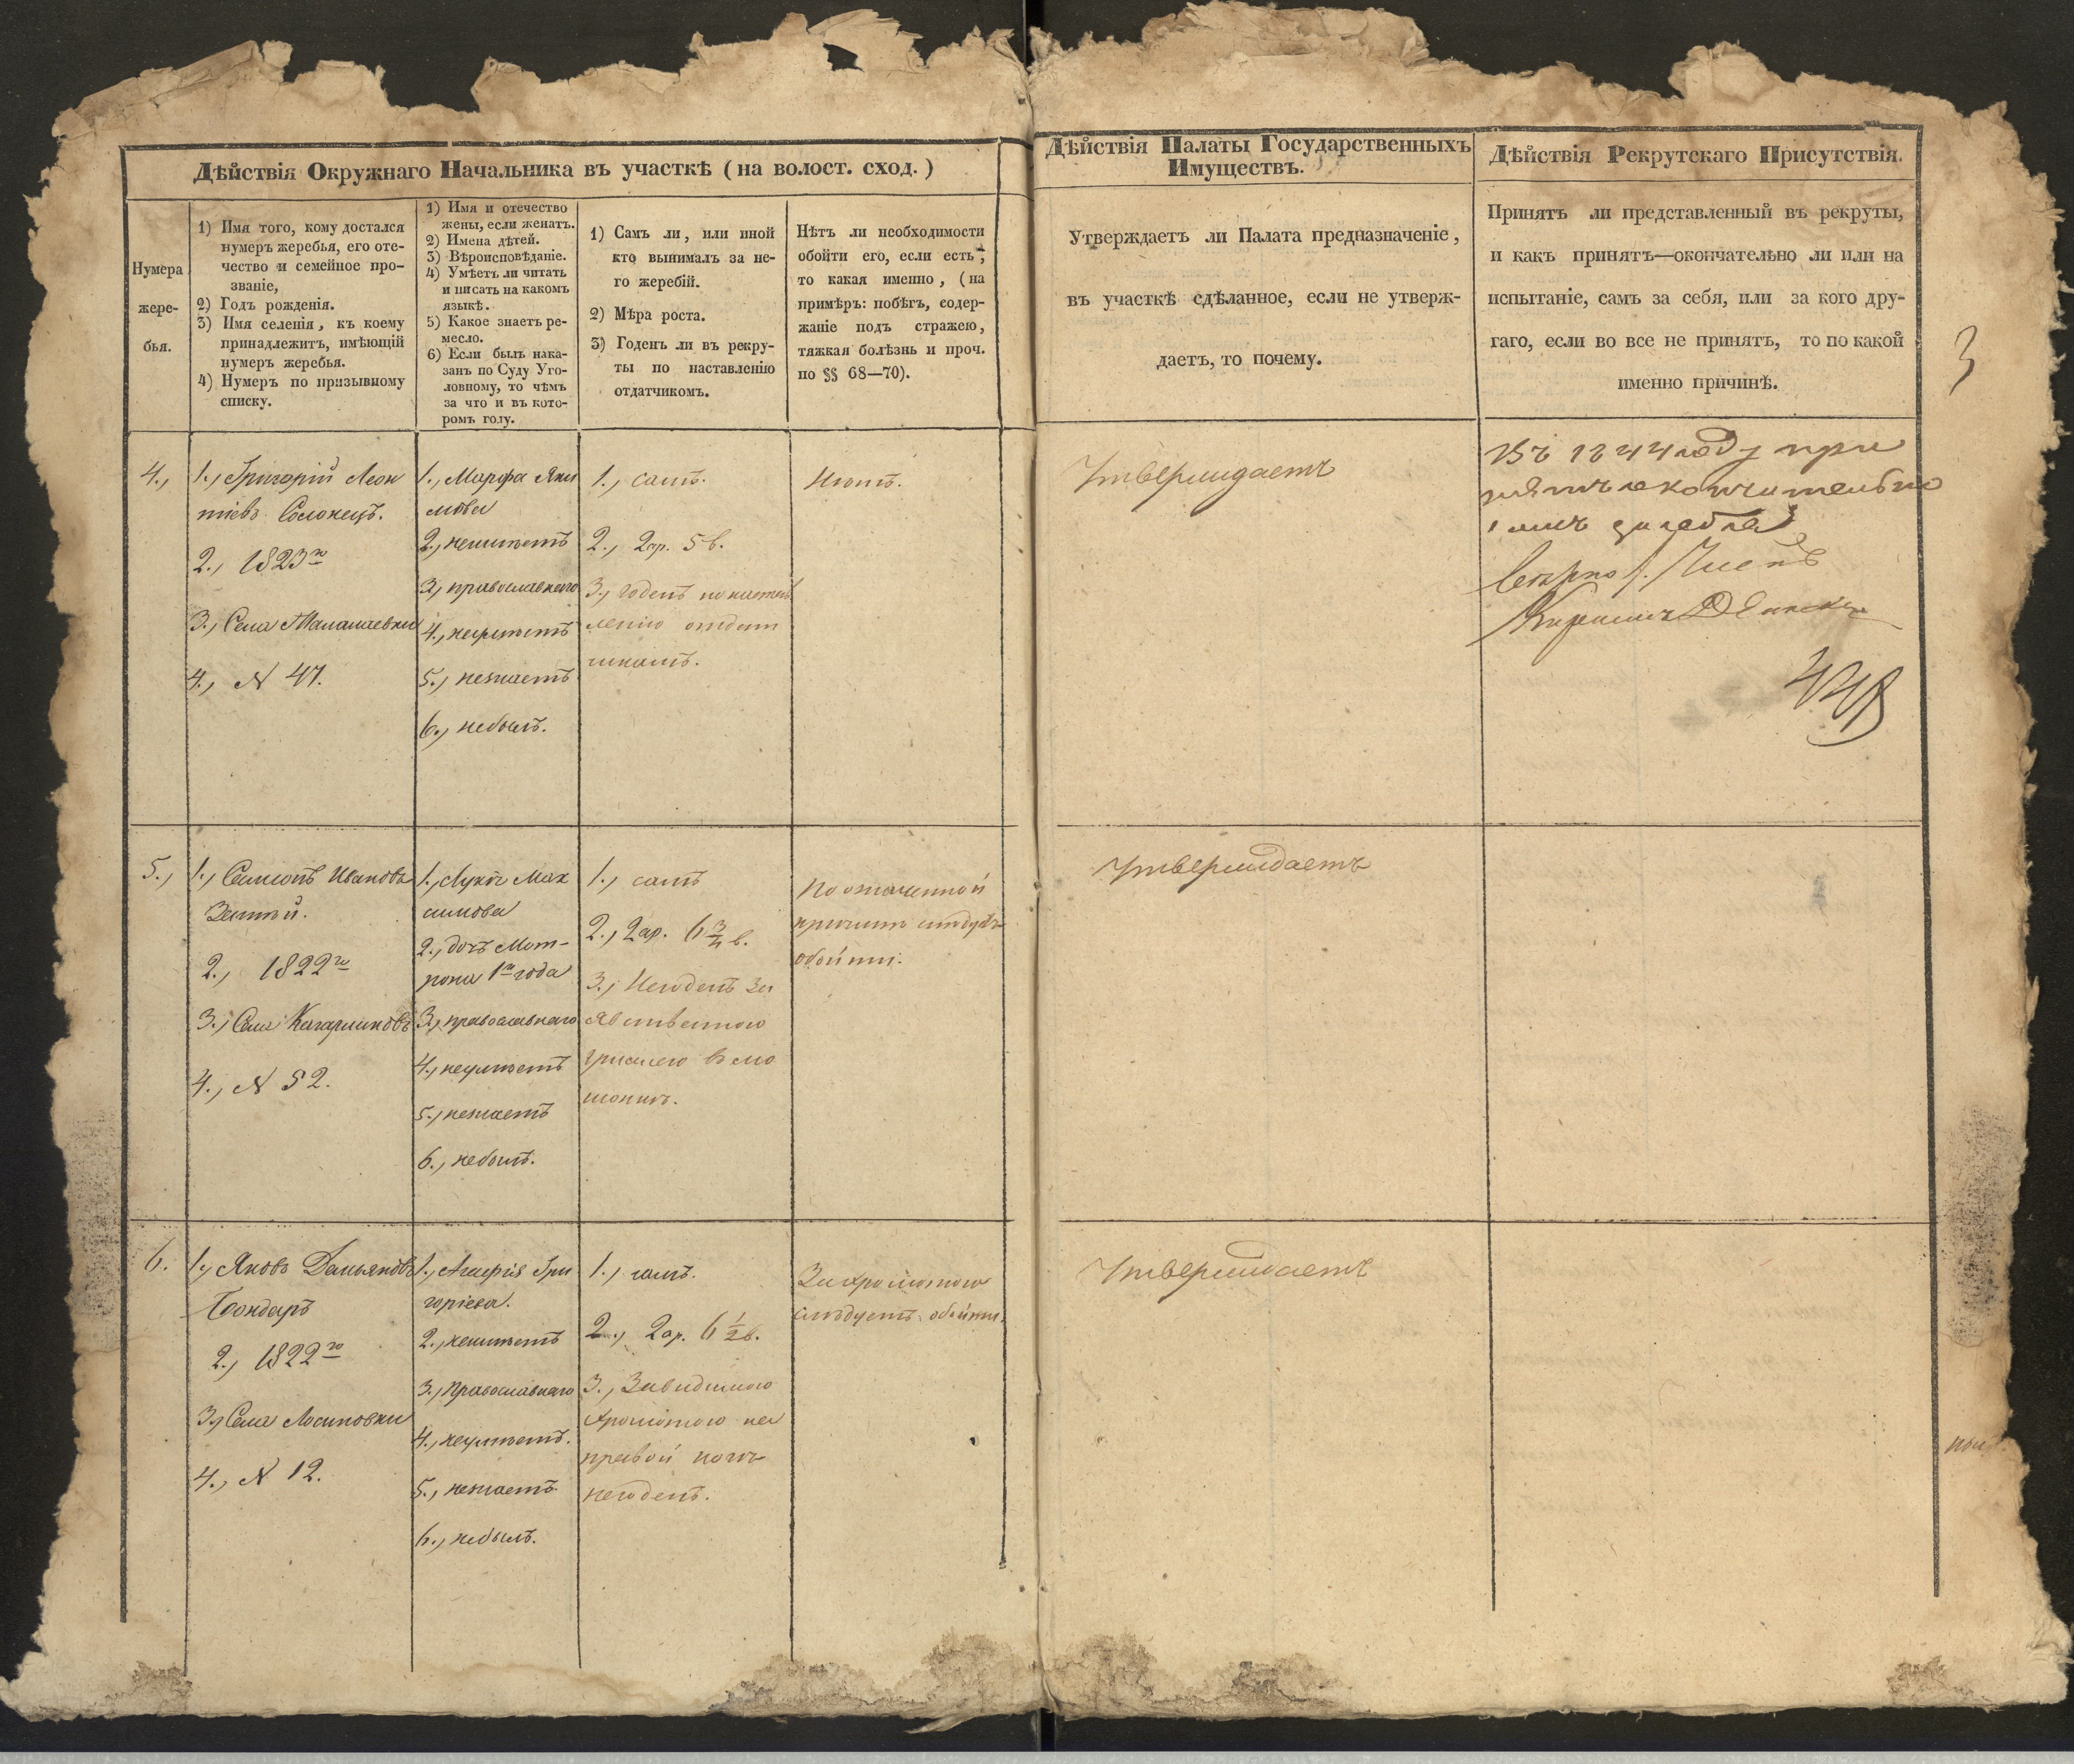 Дѣйствія Окружнаго Начальника въ участкѣ (на волост. сход.)
Нумера
жере-
бья.
1) Имя того, кому достался
нумеръ жеребья, его оте-
чество и семейное про-
званіе,
2) Годъ рожденія.
3) Имя селенія, къ коему
принадлежитъ, имѣющій
нумеръ жеребья.
4) Нумеръ по призывному
списку.
1) Имя и отечество
жены, если женатъ.
2) Имена дѣтей.
3) Вѣроисповѣданіе.
4) Умѣетъ ли читать
и писать на какомъ
языкѣ.
5) Какое знаетъ ре-
месло.
6) Если былъ нака-
занъ по Суду Уго-
ловному, то чѣмъ
за что и въ кото-
ромъ году.
1) Самъ ли, или иной
кто вынималъ за не-
го жеребій.
2) Мѣра роста.
3) Годенъ ли въ рекру-
ты по наставленію
отдатчикомъ.
Нѣтъ ли необходимости
обойти его, если есть,
то какая именно, (на
примѣръ: побѣгъ, содер-
жаніе подъ стражею,
тяжкая болѣзнь и проч.
по §§ 68—70).
Дѣйствія Палаты Государственныхъ
Имуществъ.
Утверждаетъ ли Палата предназначеніе,
въ участкѣ сдѣланное, если не утверж-
даетъ, то почему.
Дѣйствія Рекрутскаго Присутствія.
Принятъ ли представленный въ рекруты,
и какъ принятъ—окончательно ли или на
испытаніе, самъ за себя, или за кого дру-
гаго, если во все не принятъ, то по какой
именно причинѣ.
3
4.,
1., Григорій Леон
тіевъ Солонецъ.
2., 1823го
3., Села Талалаевки
4., N 47.
1., Марфа Яки
мова
2., неимѣетъ
3., православнаго
4., неумѣетъ
5., незнаетъ
6., небылъ.
1., самъ.
2., 2 ар. 5 в.
3., годенъ по настав
ленію отдат
чикамъ.
Нѣтъ.
Утверждаетъ
Въ 1844 году при
нятъ окончательно
самъ за себя
5.,
1., Самсонъ Ивановъ
2., 1822го
3., Села
4., N 52.
1., Лукія Мак
симова
2., дочь Мот-
рона 1го года
3., православнаго
4., неумѣетъ
5., незнаетъ
6., небылъ.
1., самъ
2., 2 ар. 6 3/4 в.
3., Негоденъ за
По означенной
причинѣ слѣдуетъ
обойти.
Утверждаетъ
6.
1., Яковъ Демьяновъ
Бондарь
2., 1822го
3., Села Лосиновки
4., N 12.
1., Агафія Гри
горіева.
2., неимѣетъ
3., Православнаго
4., неумѣетъ.
5., незнаетъ
6., небылъ.
1., самъ.
2., 2 ар. 6 1/2 в.
3., За видимою
хромотою на
правой ногѣ
негоденъ.
За хромотою
слѣдуетъ обойти.
Утверждаетъ